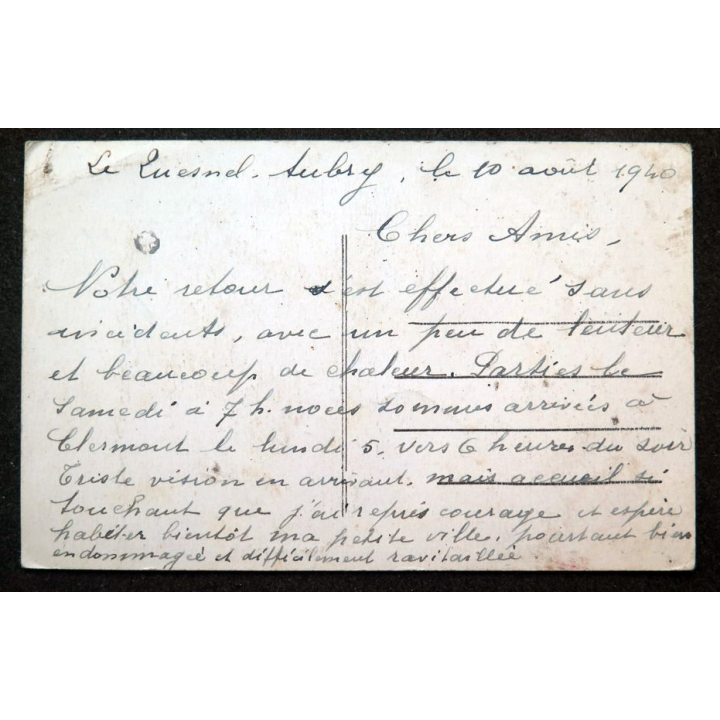 Le Quesnel-Aubry, le 10 août 1940
Chers Amis,
Notre retour s'est effectué sans
incidents, avec un peu de lenteur
et beaucoup de chaleur. Parties le
Samedi à 7 h. nous sommes arrivées à
Clermont le lundi 5, vers 6 heures du soir
Triste vision en arrivant, mais accueil si
touchant que j'ai repris courage et espère
habiter bientôt ma petite ville, pourtant bien
endommagée et difficilement ravitaillée